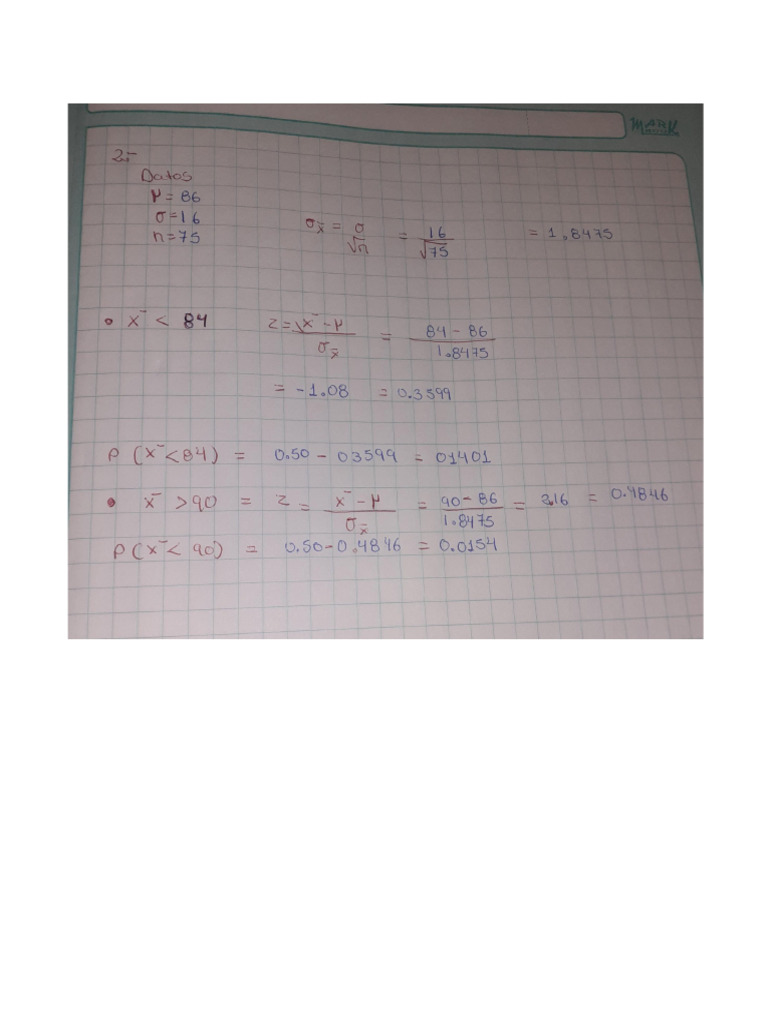 MARK
2.-
Datos
μ = 86
σ = 16
n = 75
σx̄ = σ/√n = 16/√75 = 1,8475
• x̄ < 84 z = x̄ - μ / σx̄ = 84 - 86 / 1.8475
= -1.08 = 0.3599
P (x̄ < 84) = 0.50 - 03599 = 01401
• x̄ > 90 = z = x̄ - μ / σx̄ = 90 - 86 / 1.8475 = 2.16 = 0.4846
P (x̄ < 90) = 0.50 - 0.4846 = 0.0154